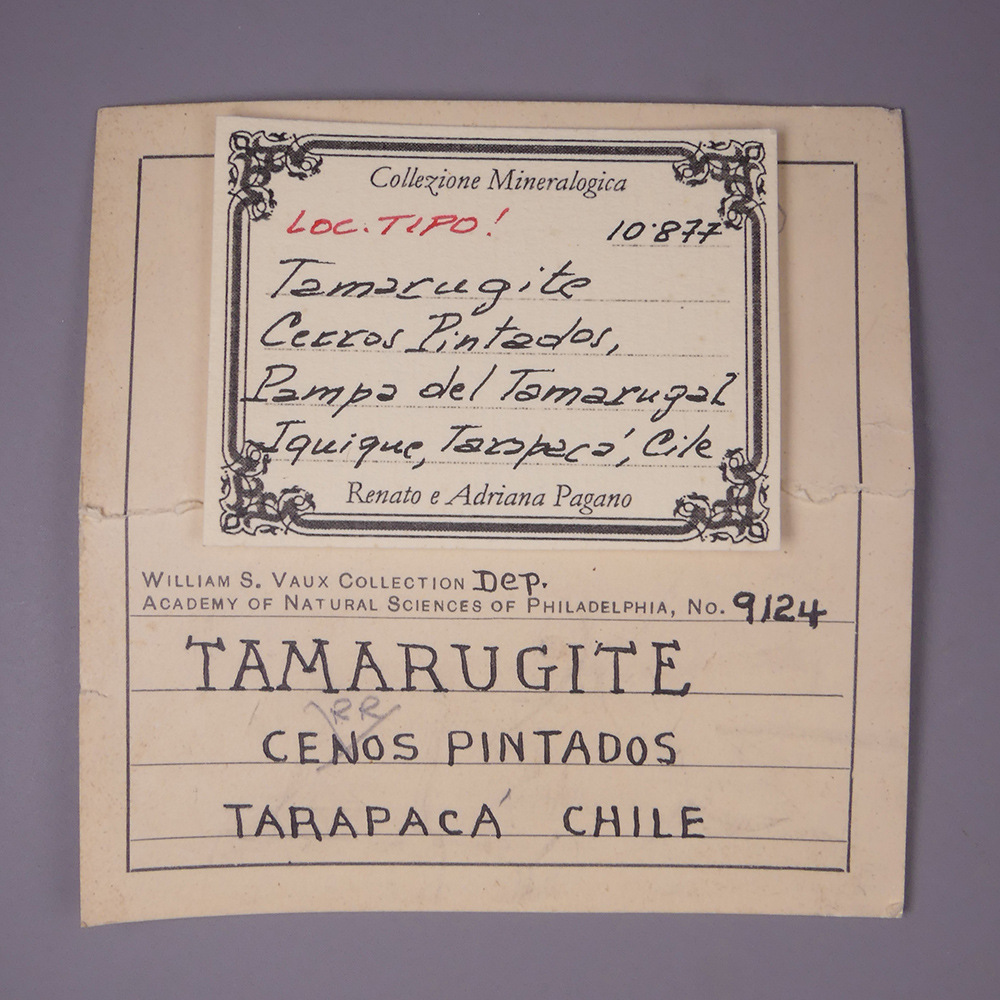 Collezione Mineralogica
LOC. TIPO! 10.877
Tamarugite
Cerros Pintados,
Pampa del Tamarugal
Iquique, Tarapacá, Cile
Renato e Adriana Pagano
WILLIAM S. VAUX COLLECTION Dep.
ACADEMY OF NATURAL SCIENCES OF PHILADELPHIA, NO. 9124
TAMARUGITE
RR
CENOS PINTADOS
TARAPACÁ CHILE